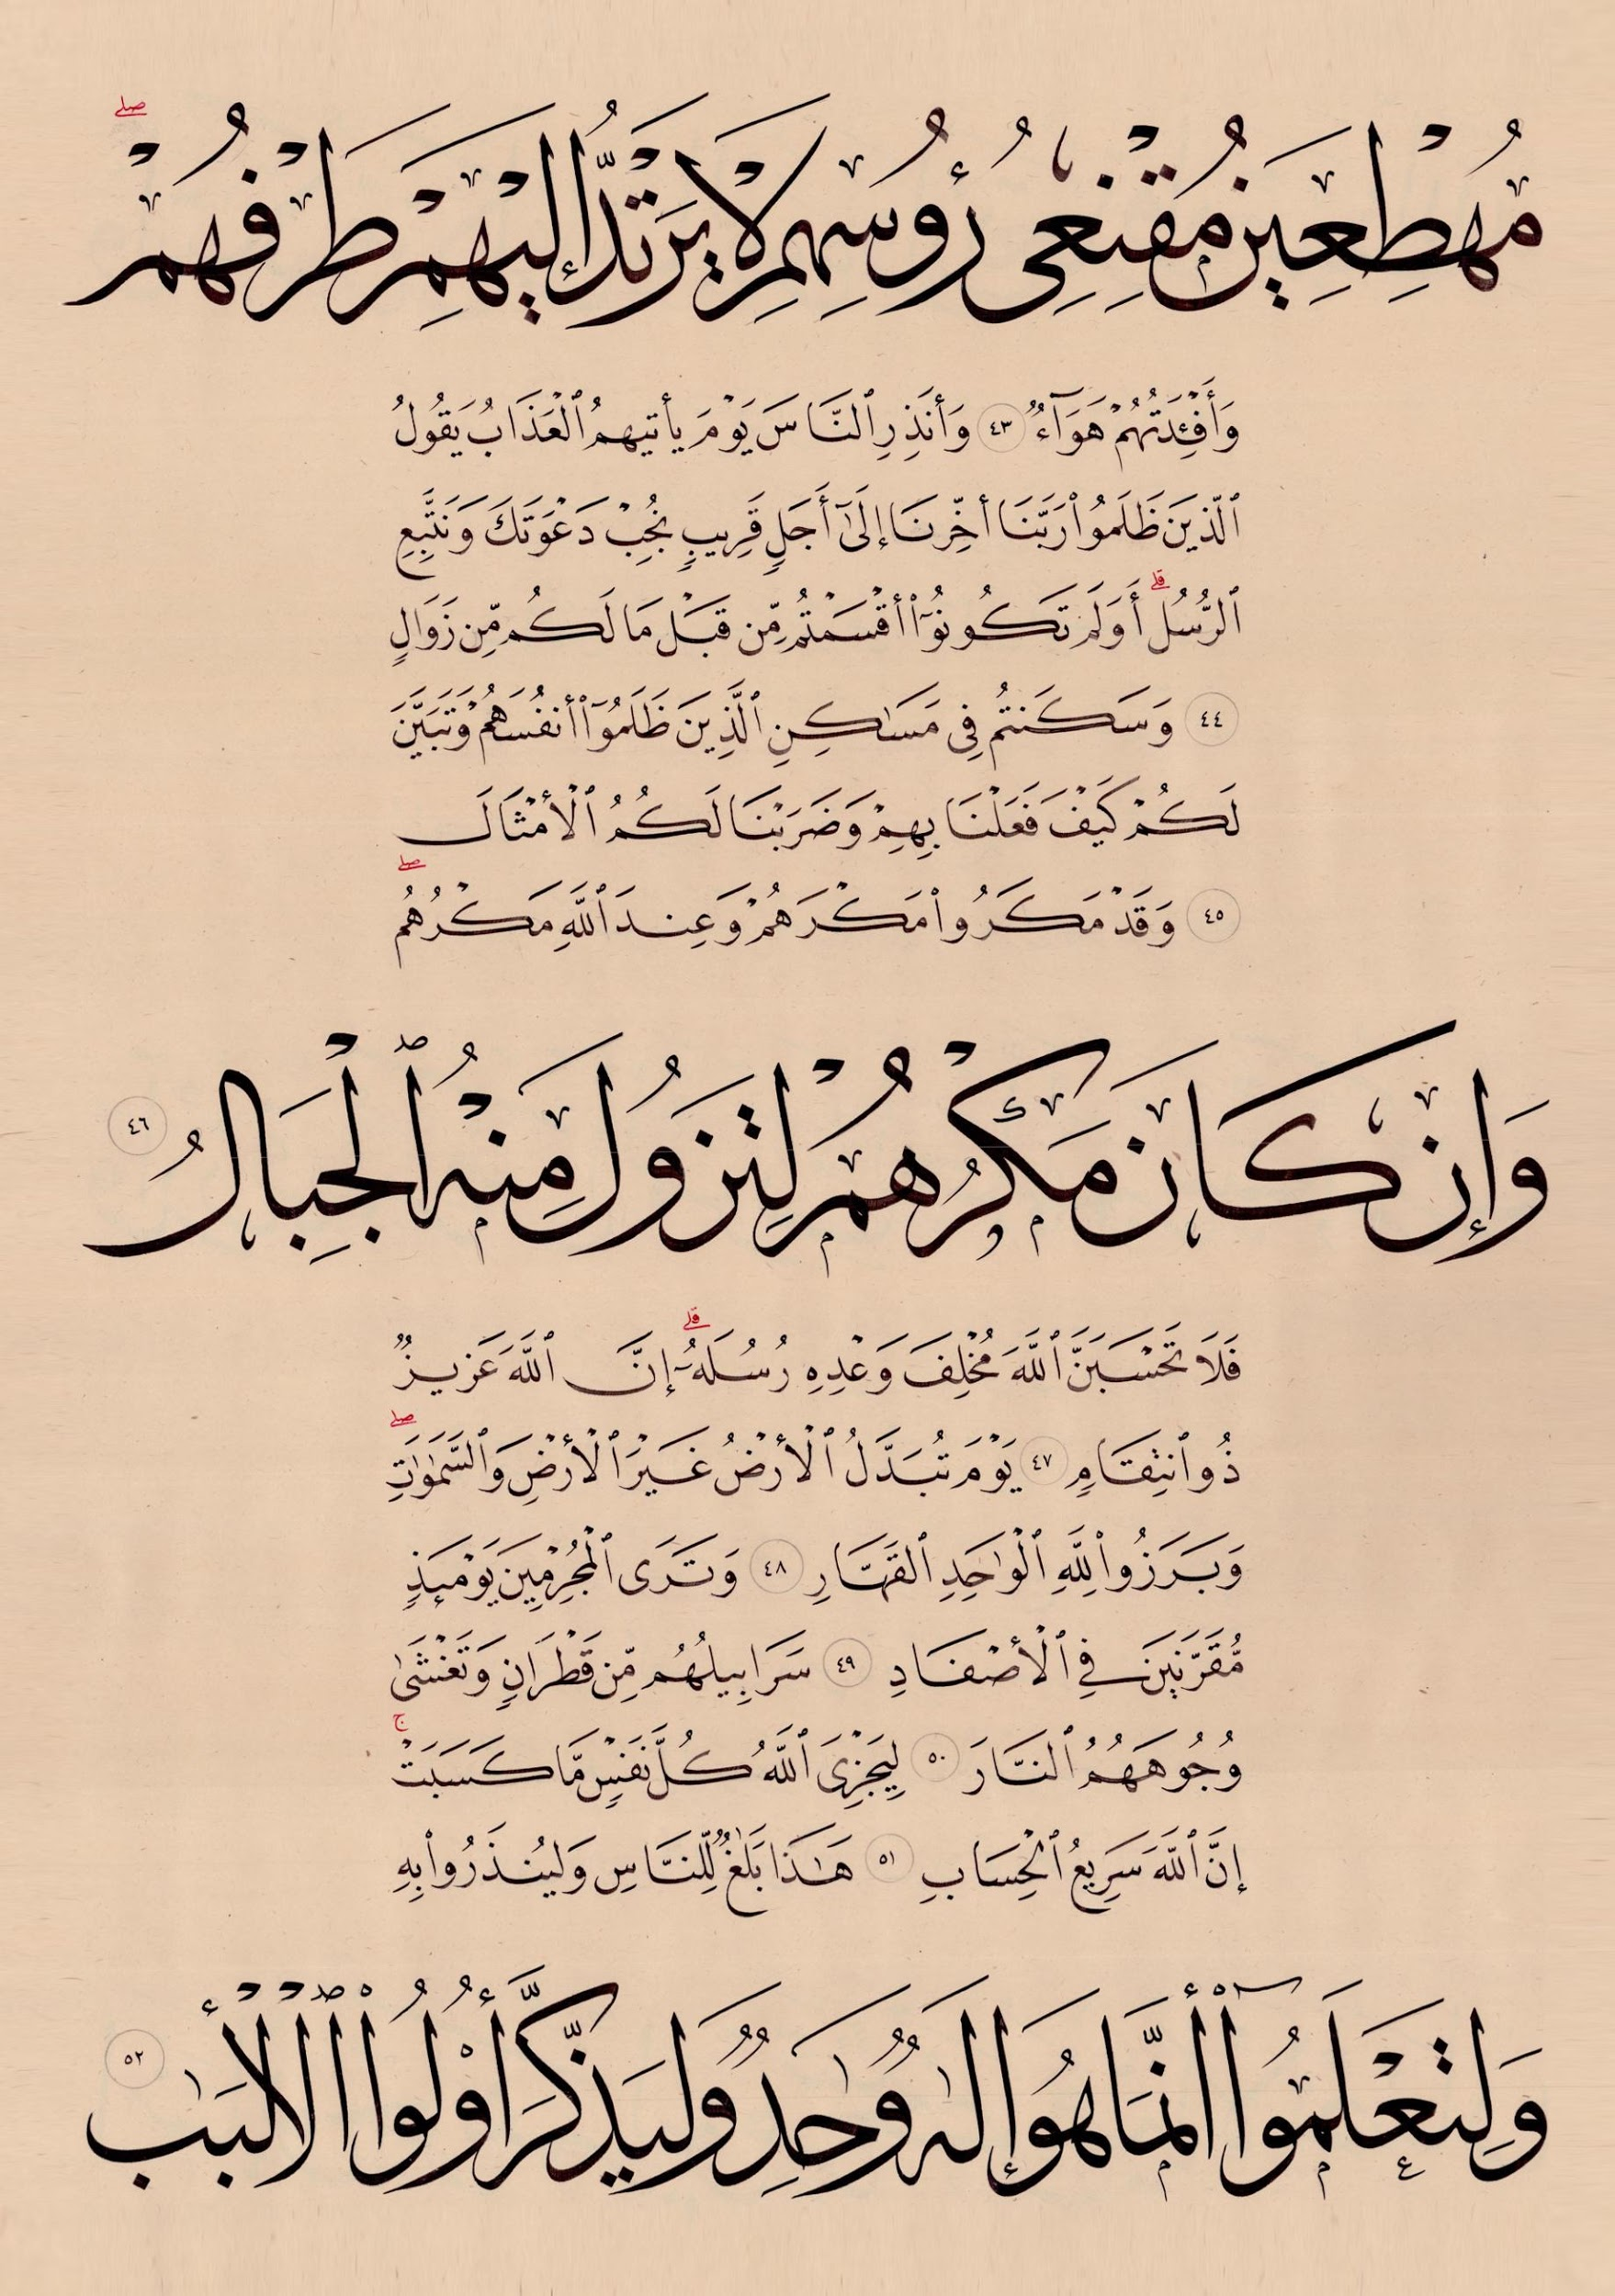 مُهْطِعِينَ مُقْنِعِى رُءُوسِهِمْ لَا يَرْتَدُّ إِلَيْهِمْ طَرْفُهُمْ ۖ
وَأَفْـِٔدَتُهُمْ هَوَآءٌ ٤٣ وَأَنذِرِ ٱلنَّاسَ يَوْمَ يَأْتِيهِمُ ٱلْعَذَابُ يَقُولُ
ٱلَّذِينَ ظَلَمُوا۟ رَبَّنَا أَخِّرْنَا إِلَىٰٓ أَجَلٍ قَرِيبٍ نُّجِبْ دَعْوَتَكَ وَنَتَّبِعِ
ٱلرُّسُلَ ۗ أَوَلَمْ تَكُونُوٓا۟ أَقْسَمْتُم مِّن قَبْلُ مَا لَكُم مِّن زَوَالٍ
٤٤ وَسَكَنتُمْ فِى مَسَـٰكِنِ ٱلَّذِينَ ظَلَمُوٓا۟ أَنفُسَهُمْ وَتَبَيَّنَ
لَكُمْ كَيْفَ فَعَلْنَا بِهِمْ وَضَرَبْنَا لَكُمُ ٱلْأَمْثَالَ
٤٥ وَقَدْ مَكَرُوا۟ مَكْرَهُمْ وَعِندَ ٱللَّهِ مَكْرُهُمْ ۖ
وَإِن كَانَ مَكْرُهُمْ لِتَزُولَ مِنْهُ ٱلْجِبَالُ ٤٦
فَلَا تَحْسَبَنَّ ٱللَّهَ مُخْلِفَ وَعْدِهِ رُسُلَهُۥٓ ۗ إِنَّ ٱللَّهَ عَزِيزٌ
ذُو ٱنتِقَامٍ ٤٧ يَوْمَ تُبَدَّلُ ٱلْأَرْضُ غَيْرَ ٱلْأَرْضِ وَٱلسَّمَـٰوَٰتُ ۖ
وَبَرَزُوا۟ لِلَّهِ ٱلْوَٰحِدِ ٱلْقَهَّارِ ٤٨ وَتَرَى ٱلْمُجْرِمِينَ يَوْمَئِذٍ
مُّقَرَّنِينَ فِى ٱلْأَصْفَادِ ٤٩ سَرَابِيلُهُم مِّن قَطِرَانٍ وَتَغْشَىٰ
وُجُوهَهُمُ ٱلنَّارُ ٥٠ لِيَجْزِىَ ٱللَّهُ كُلَّ نَفْسٍ مَّا كَسَبَتْ ۚ
إِنَّ ٱللَّهَ سَرِيعُ ٱلْحِسَابِ ٥١ هَـٰذَا بَلَـٰغٌ لِّلنَّاسِ وَلِيُنذَرُوا۟ بِهِ
وَلِيَعْلَمُوٓا۟ أَنَّمَا هُوَ إِلَـٰهٌ وَٰحِدٌ وَلِيَذَّكَّرَ أُو۟لُوا۟ ٱلْأَلْبَـٰبِ ٥٢